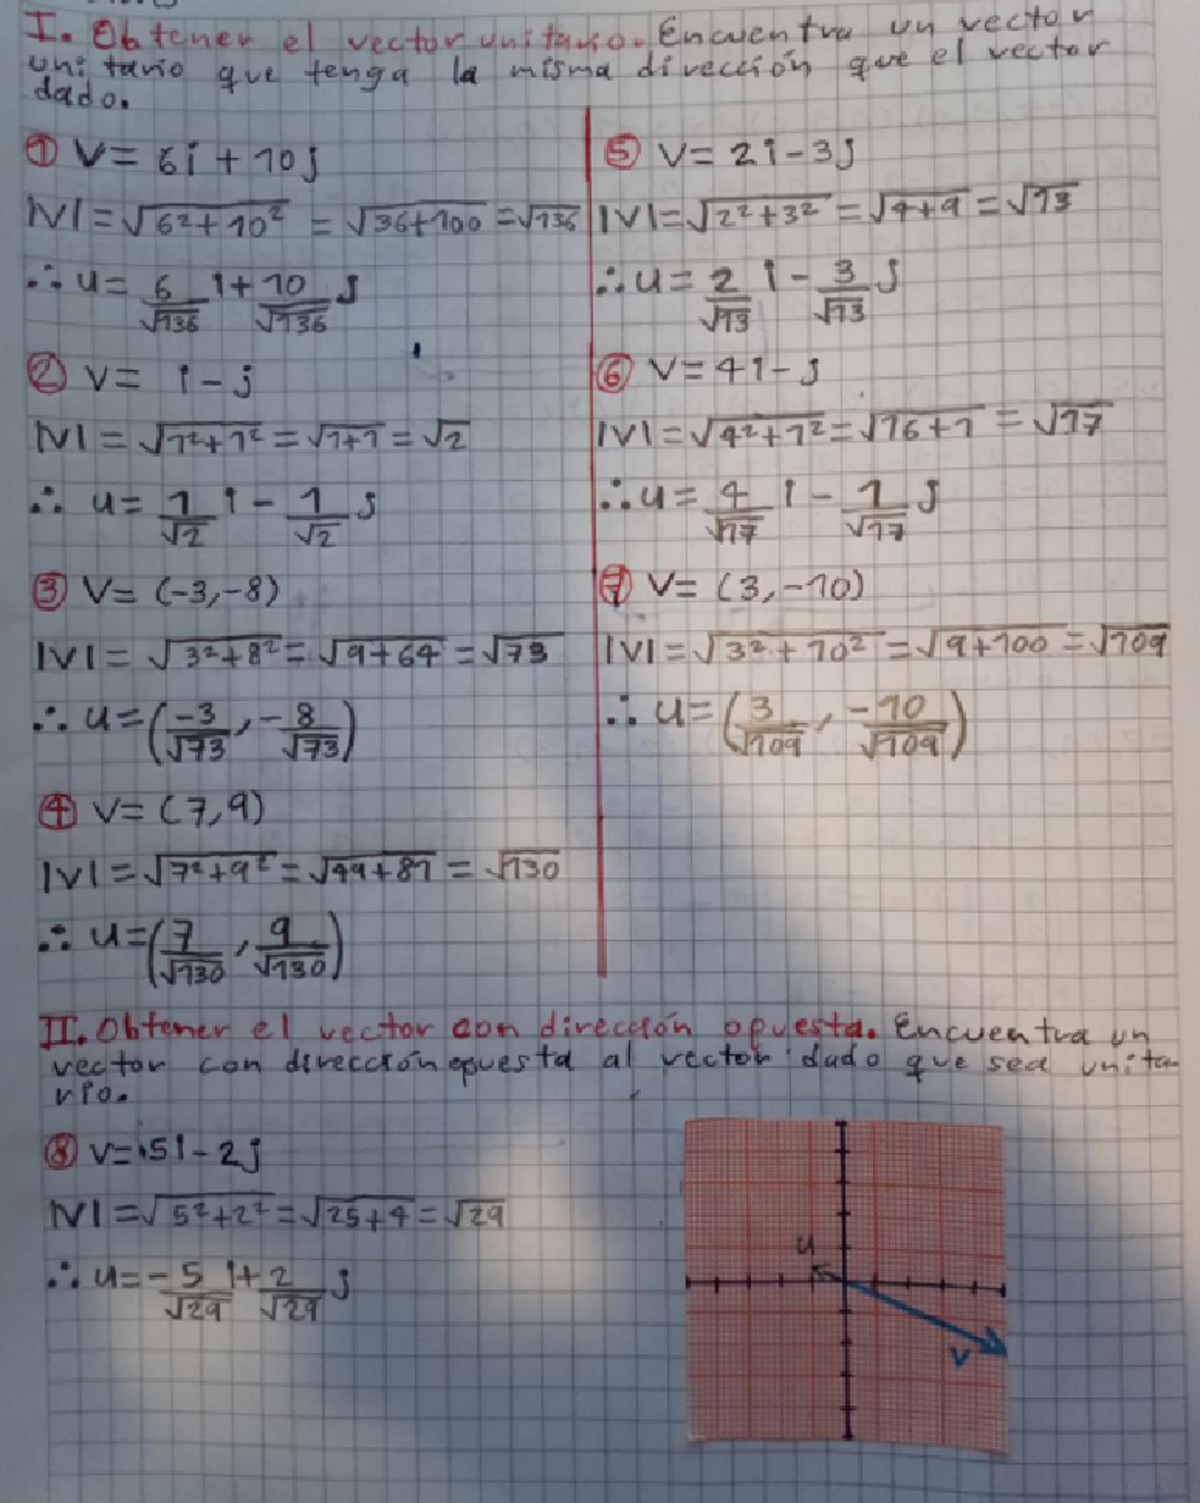 I. Obtener el vector unitario. Encuentra un vector
unitario que tenga la misma dirección que el vector
dado.
① V = 6i + 10j
|V| = √(6² + 10²) = √(36+100) = √136
∴ u = 6/√136 i + 10/√136 j
② V = i - j
|V| = √(1² + 1²) = √(1+1) = √2
∴ u = 1/√2 i - 1/√2 j
③ V = (-3, -8)
|V| = √(3² + 8²) = √(9+64) = √73
∴ u = (-3/√73, -8/√73)
④ V = (7, 9)
|V| = √(7² + 9²) = √(49+81) = √130
∴ u = (7/√130, 9/√130)
⑤ V = 2i - 3j
|V| = √(2² + 3²) = √(4+9) = √13
∴ u = 2/√13 i - 3/√13 j
⑥ V = 4i - j
|V| = √(4² + 1²) = √(16+1) = √17
∴ u = 4/√17 i - 1/√17 j
⑦ V = (3, -10)
|V| = √(3² + 10²) = √(9+100) = √109
∴ u = (3/√109, -10/√109)
II. Obtener el vector con dirección opuesta. Encuentra un
vector con dirección opuesta al vector dado que sea unita-
rio.
⑧ V = 5i - 2j
|V| = √(5² + 2²) = √(25+4) = √29
∴ u = -5/√29 i + 2/√29 j
u
v